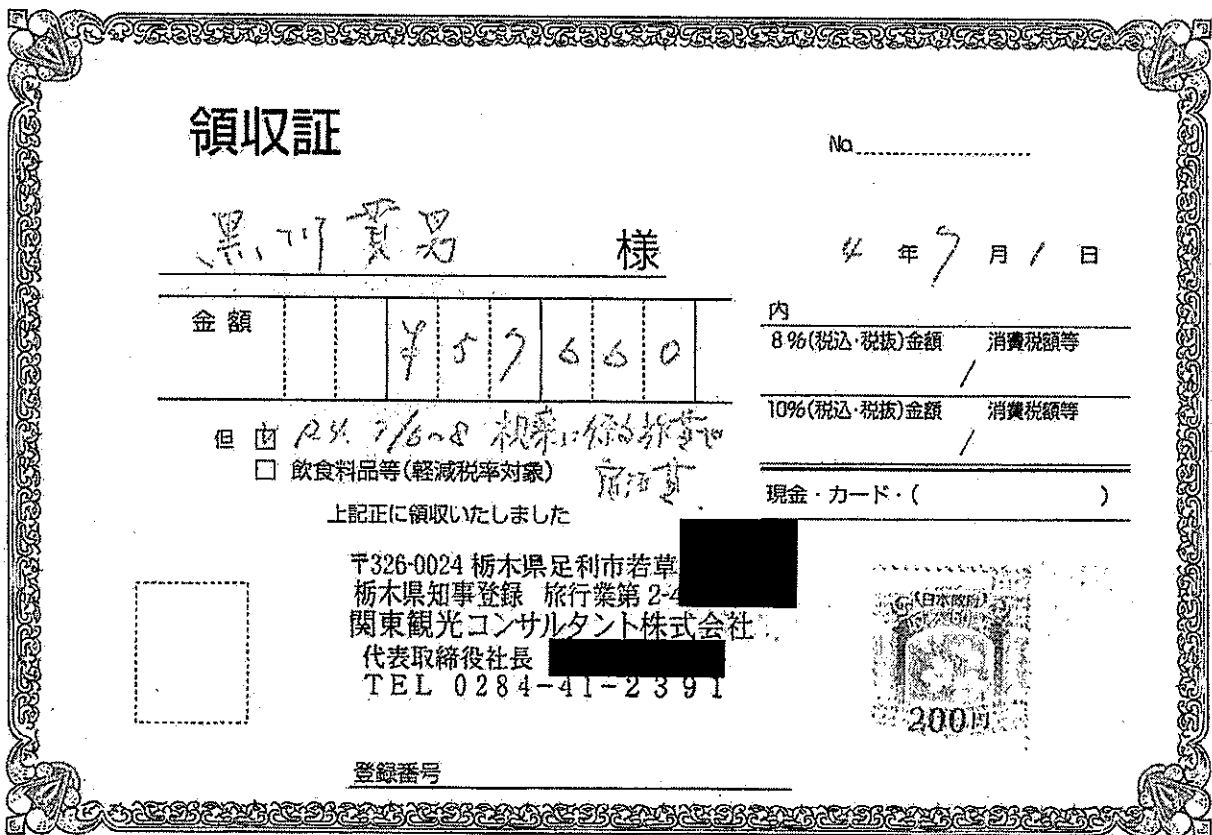 領収証
No.
黒川貫男 様
4年7月1日
金額 ¥57660
内
8%(税込・税抜)金額 消費税額等
/
10%(税込・税抜)金額 消費税額等
/
現金・カード・( )
但 R4. 7/6~8 視察に係る旅費や
□ 飲食料品等(軽減税率対象) 宿泊費
上記正に領収いたしました
〒326-0024 栃木県足利市若草
栃木県知事登録 旅行業第 2-4
関東観光コンサルタント株式会社
代表取締役社長
TEL 0284-41-2391
日本政府
200円
登録番号